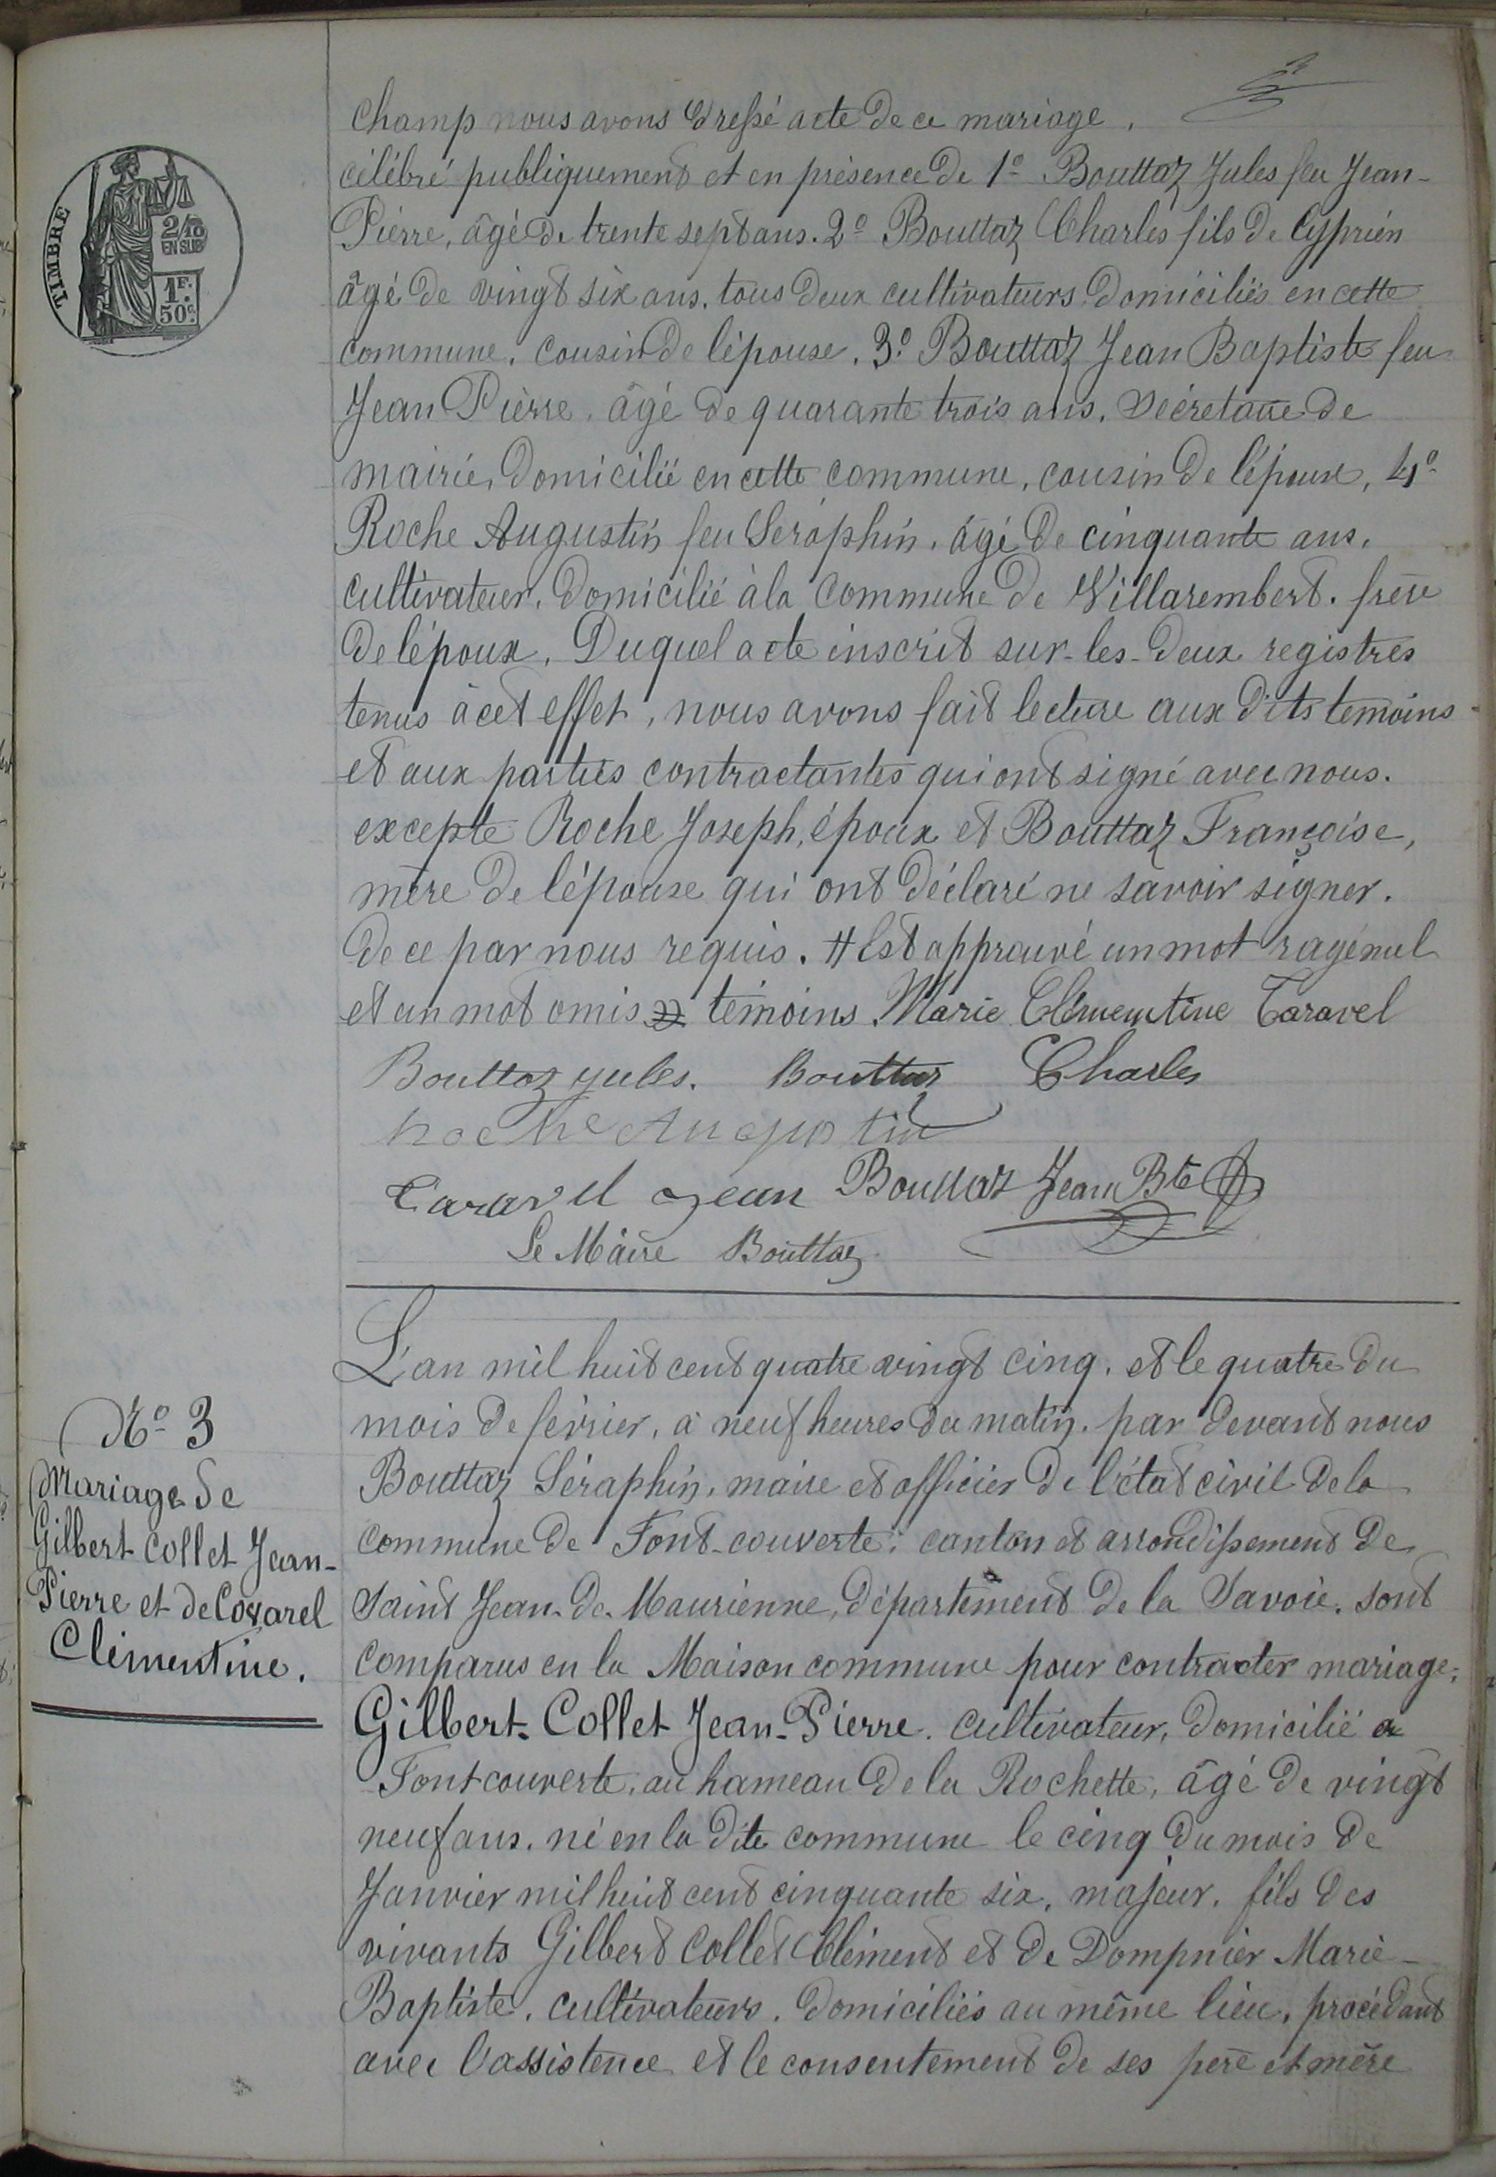 champ nous avons dressé acte de ce mariage,
célébré publiquement et en présence de 1º Bouttaz Jules feu Jean-
Pierre, âgé de trente sept ans. 2º Bouttaz Charles fils de Cyprien
âgé de vingt six ans. tous deux cultivateurs domiciliés en cette
commune. cousin de l'épouse. 3º Bouttaz Jean Baptiste feu
Jean Pierre. âgé de quarante trois ans. Sécretaire de
mairie, domicilié en cette commune, cousin de l'époux, 4º
Roche Augustin feu Séraphin. âgé de cinquante ans.
cultivateur. domicilié à la commune de Villarembert. frère
de l'époux. Duquel acte inscrit sur-les-deux registres
tenus à cet effet, nous avons fait lecture aux dits temoins
et aux parties contractantes qui ont signé avec nous.
excepte Roche Joseph, époux et Bouttaz Françoise,
mère de l'épouse qui ont déclaré ne savoir signer.
de ce par nous requis. # Est approuvé un mot rayé nul
et un mot omis témoins Marie Clémentine Taravel
Bouttaz Jules. Bouttaz Charles
Roche Augustin
Taravel Jean Bouttaz Jean Bte
Le Maire Bouttaz
TIMBRE
2/10
EN SUS
1F.
50c.
Nº 3
Mariage de
Gilbert Collet Jean-
Pierre et de Covarel
Clémentine.
L'an mil huit cent quatre vingt cinq. et le quatre du
mois de février, à neuf heures du matin. par devant nous
Bouttaz Séraphin, maire et officier de l'état civil de la
commune de Font-couverte: canton et arrondissement de
Saint Jean-de-Maurienne, département de la Savoie. sont
comparus en la Maison commune pour contracter mariage;
Gilbert-Collet Jean-Pierre. cultivateur, domicilié à
Fontcouverte, au hameau de la Rochette, âgé de vingt
neuf ans. né en la dite commune le cinq du mois de
Janvier mil huit cent cinquante six, majeur. fils des
vivants Gilbert Collet Clément et de Dompnier Marie-
Baptiste. cultivateurs. domiciliés au même lieu, procédant
avec l'assistence et le consentement de ses père et mère